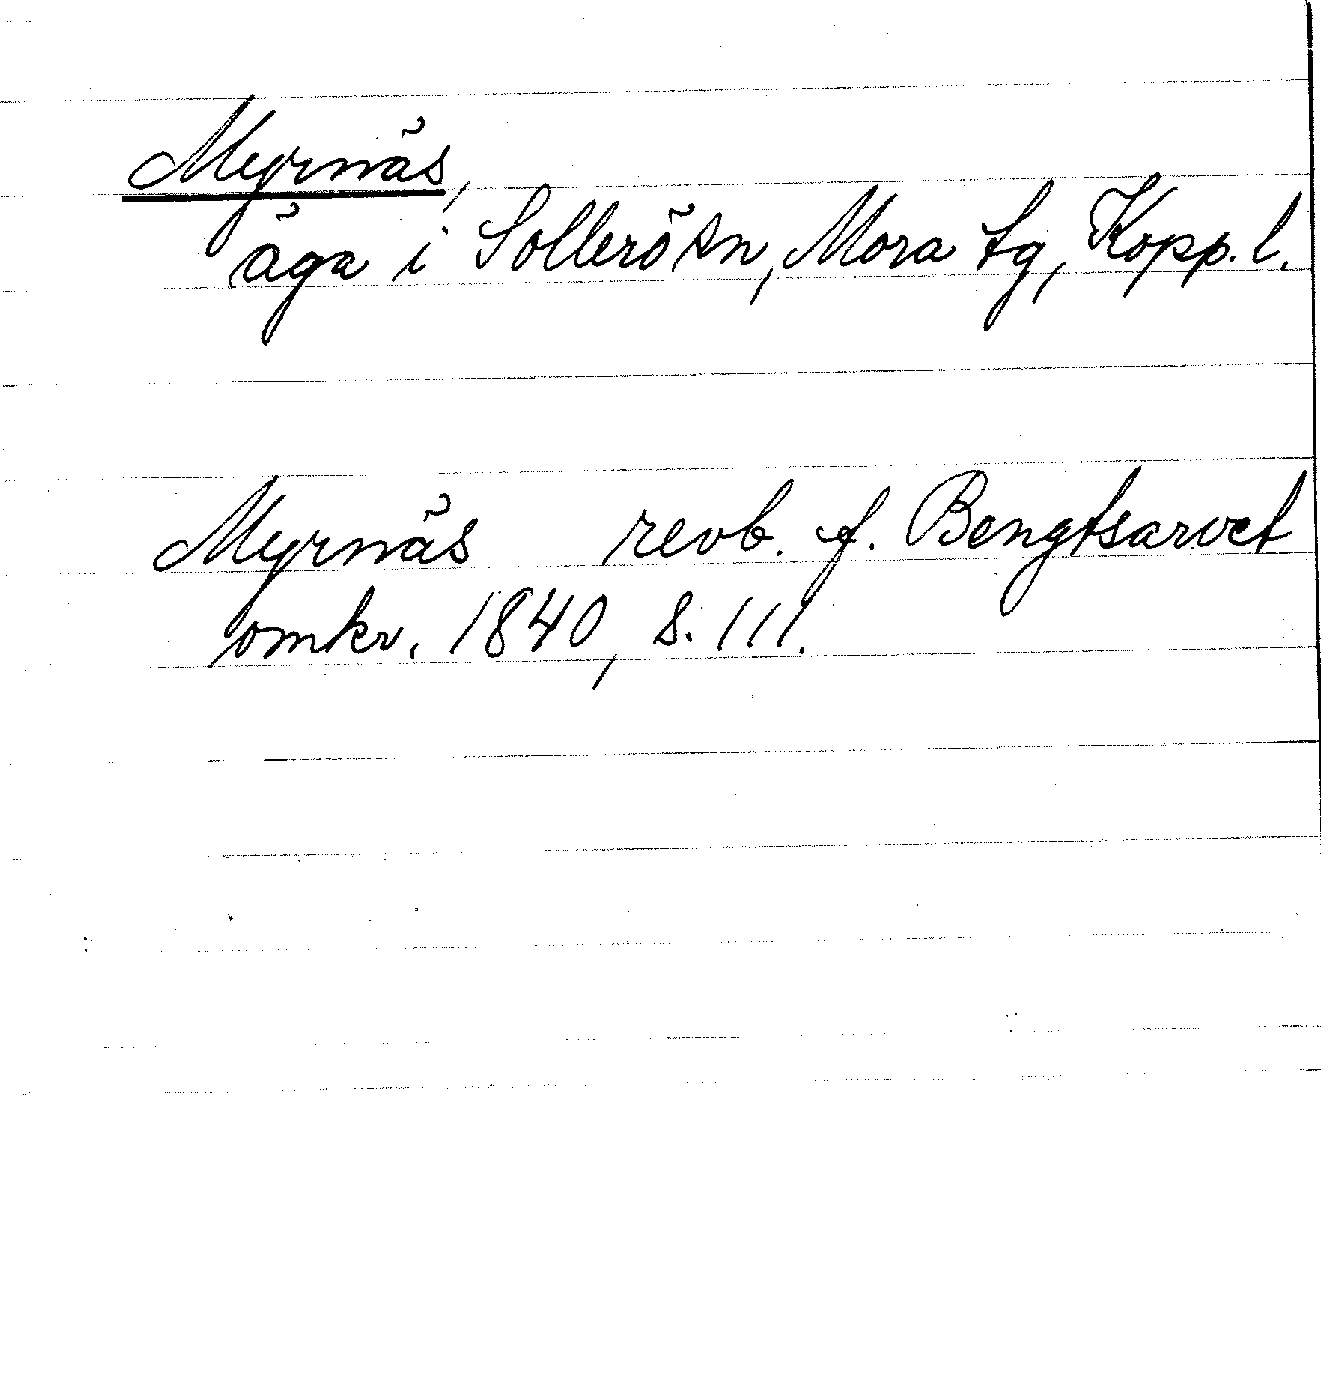 Myrnäs,
äga i Sollerö sn, Mora tg, Kopp. l.
Myrnäs revb. f. Bengtsarvet
omkr. 1840, s. 111.